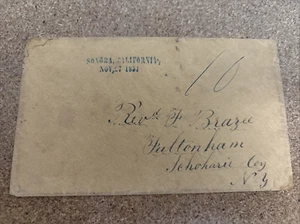 SONORA, CALIFORNIA,
NOV. 27 1857
10
Revd F Brazee
Fultonham
Schoharie Coy
N. Y